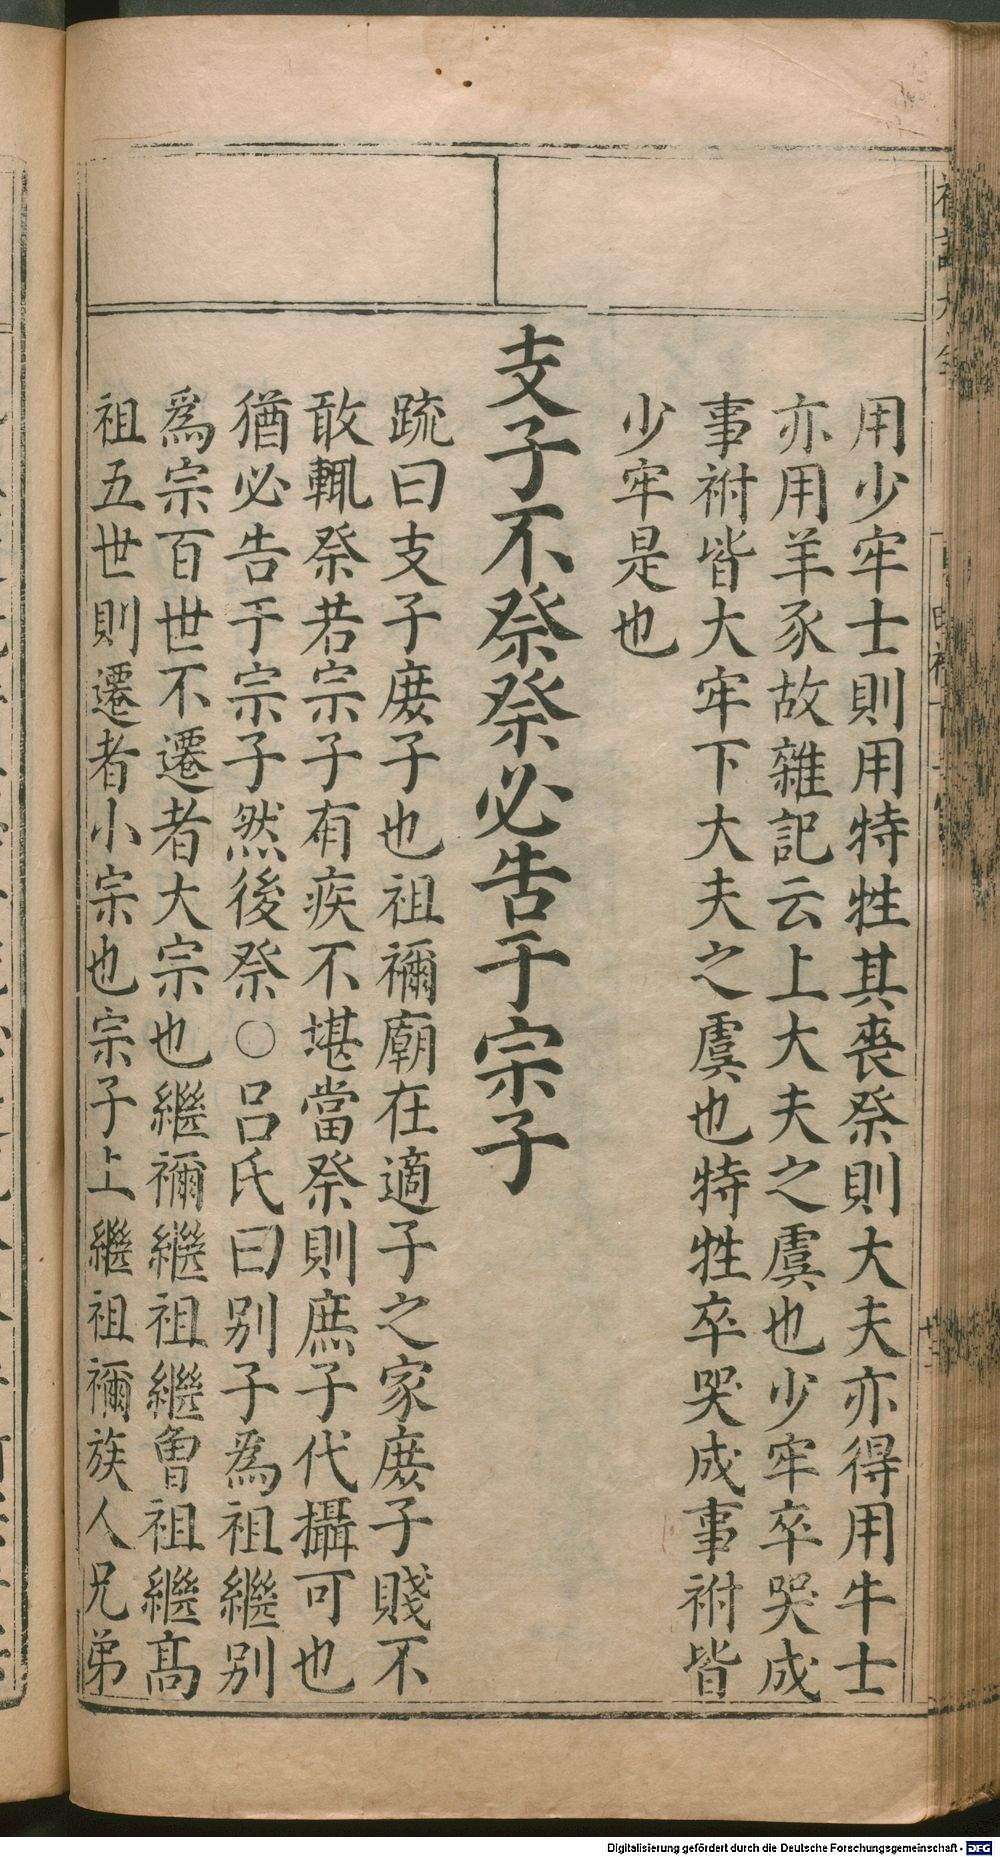 用少牢士則用特牲其喪祭則大夫亦得用牛士
亦用羊豕故雜記云上大夫之虞也少牢卒哭成
事祔皆大牢下大夫之虞也特牲卒哭成事祔皆
少牢是也
支子不祭祭必告于宗子
疏曰支子庶子也祖禰廟在適子之家庶子賤不
敢輒祭若宗子有疾不堪當祭則庶子代攝可也
猶必告于宗子然後祭○呂氏曰別子為祖繼別
為宗百世不遷者大宗也繼禰繼祖繼曾祖繼高
祖五世則遷者小宗也宗子上繼祖禰族人兄弟
Digitalisierung gefördert durch die Deutsche Forschungsgemeinschaft - DFG